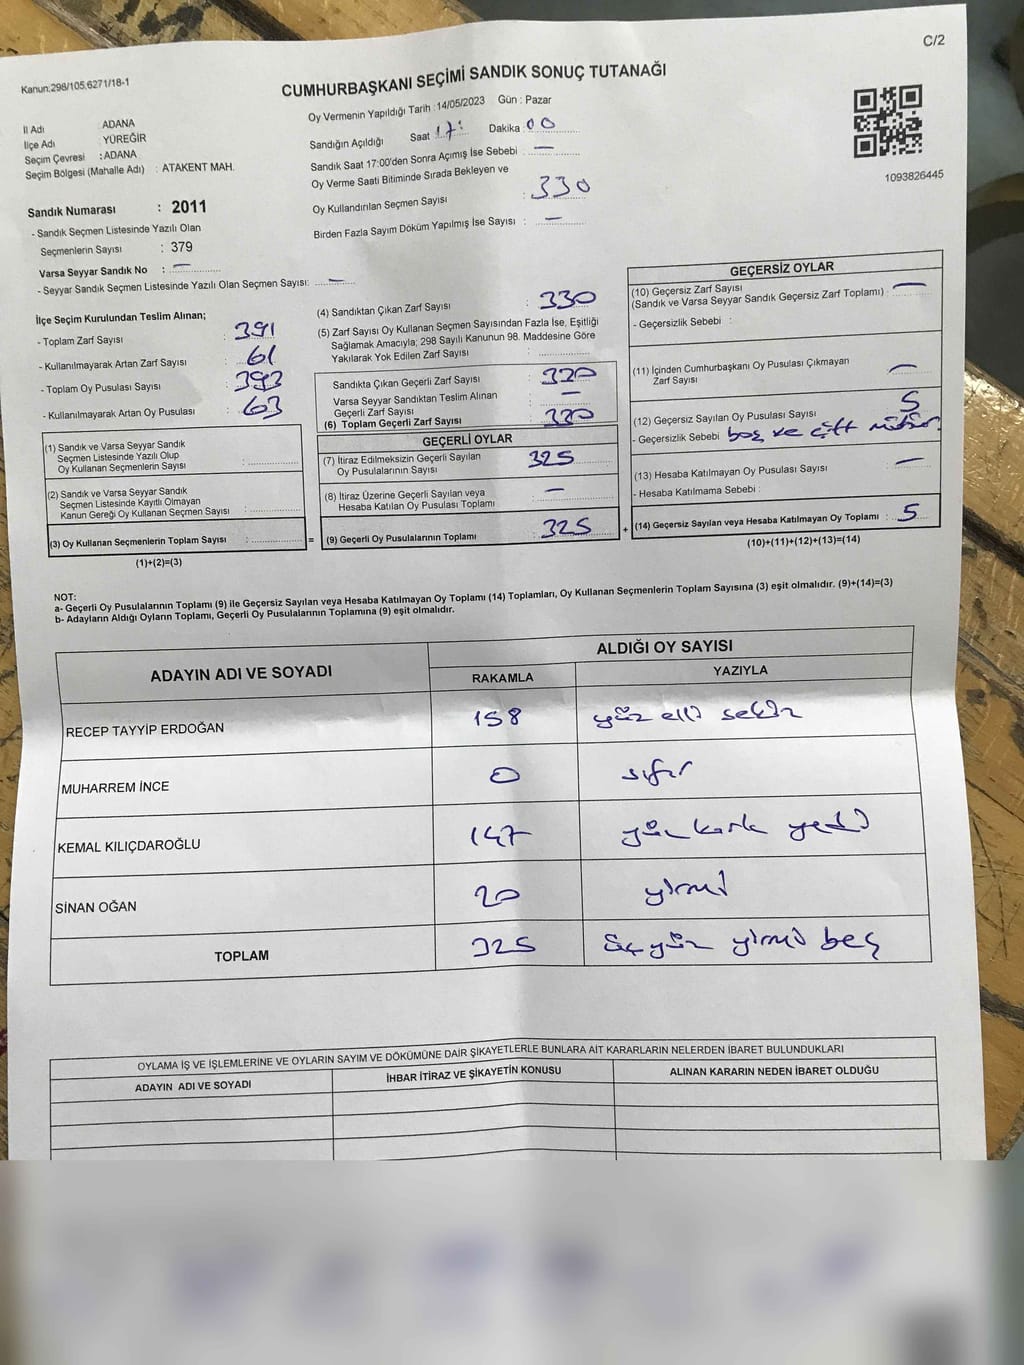 C/2
Kanun:298/105,6271/18-1
CUMHURBAŞKANI SEÇİMİ SANDIK SONUÇ TUTANAĞI
İl Adı : ADANA
İlçe Adı : YÜREĞİR
Seçim Çevresi : ADANA
Seçim Bölgesi (Mahalle Adı) : ATAKENT MAH.
Sandık Numarası : 2011
- Sandık Seçmen Listesinde Yazılı Olan
Seçmenlerin Sayısı : 379
Varsa Seyyar Sandık No : —
- Seyyar Sandık Seçmen Listesinde Yazılı Olan Seçmen Sayısı: —
Oy Vermenin Yapıldığı Tarih : 14/05/2023 Gün : Pazar
Sandığın Açıldığı Saat 17: Dakika 00
Sandık Saat 17:00'den Sonra Açımış İse Sebebi : —
Oy Verme Saati Bitiminde Sırada Bekleyen ve
Oy Kullandırılan Seçmen Sayısı : 330
Birden Fazla Sayım Döküm Yapılmış İse Sayısı : —
1093826445
İlçe Seçim Kurulundan Teslim Alınan;
- Toplam Zarf Sayısı : 391
- Kullanılmayarak Artan Zarf Sayısı : 61
- Toplam Oy Pusulası Sayısı : 393
- Kullanılmayarak Artan Oy Pusulası : 63
(1) Sandık ve Varsa Seyyar Sandık
Seçmen Listesinde Yazılı Olup
Oy Kullanan Seçmenlerin Sayısı :
(2) Sandık ve Varsa Seyyar Sandık
Seçmen Listesinde Kayıtlı Olmayan
Kanun Gereği Oy Kullanan Seçmen Sayısı :
(3) Oy Kullanan Seçmenlerin Toplam Sayısı : =
(1)+(2)=(3)
(4) Sandıktan Çıkan Zarf Sayısı : 330
(5) Zarf Sayısı Oy Kullanan Seçmen Sayısından Fazla İse, Eşitliği
Sağlamak Amacıyla; 298 Sayılı Kanunun 98. Maddesine Göre
Yakılarak Yok Edilen Zarf Sayısı :
Sandıkta Çıkan Geçerli Zarf Sayısı : 330
Varsa Seyyar Sandıktan Teslim Alınan
Geçerli Zarf Sayısı : —
(6) Toplam Geçerli Zarf Sayısı : 330
GEÇERLİ OYLAR
(7) İtiraz Edilmeksizin Geçerli Sayılan
Oy Pusulalarının Sayısı : 325
(8) İtiraz Üzerine Geçerli Sayılan veya
Hesaba Katılan Oy Pusulası Toplamı : —
(9) Geçerli Oy Pusulalarının Toplamı : 325 +
GEÇERSİZ OYLAR
(10) Geçersiz Zarf Sayısı
(Sandık ve Varsa Seyyar Sandık Geçersiz Zarf Toplamı) : —
- Geçersizlik Sebebi :
(11) İçinden Cumhurbaşkanı Oy Pusulası Çıkmayan
Zarf Sayısı : —
(12) Geçersiz Sayılan Oy Pusulası Sayısı : 5
- Geçersizlik Sebebi : boş ve çift mühür.
(13) Hesaba Katılmayan Oy Pusulası Sayısı : —
- Hesaba Katılmama Sebebi :
(14) Geçersiz Sayılan veya Hesaba Katılmayan Oy Toplamı : 5
(10)+(11)+(12)+(13)=(14)
NOT:
a- Geçerli Oy Pusulalarının Toplamı (9) ile Geçersiz Sayılan veya Hesaba Katılmayan Oy Toplamı (14) Toplamları, Oy Kullanan Seçmenlerin Toplam Sayısına (3) eşit olmalıdır. (9)+(14)=(3)
b- Adayların Aldığı Oyların Toplamı, Geçerli Oy Pusulalarının Toplamına (9) eşit olmalıdır.
ADAYIN ADI VE SOYADI ALDIĞI OY SAYISI
RAKAMLA YAZIYLA
RECEP TAYYİP ERDOĞAN 158 yüz elli sekiz
MUHARREM İNCE 0 sıfır
KEMAL KILIÇDAROĞLU 147 yüz kırk yedi
SİNAN OĞAN 20 yirmi
TOPLAM 325 üç yüz yirmi beş
OYLAMA İŞ VE İŞLEMLERİNE VE OYLARIN SAYIM VE DÖKÜMÜNE DAİR ŞİKAYETLERLE BUNLARA AİT KARARLARIN NELERDEN İBARET BULUNDUKLARI
ADAYIN ADI VE SOYADI İHBAR İTİRAZ VE ŞİKAYETİN KONUSU ALINAN KARARIN NEDEN İBARET OLDUĞU